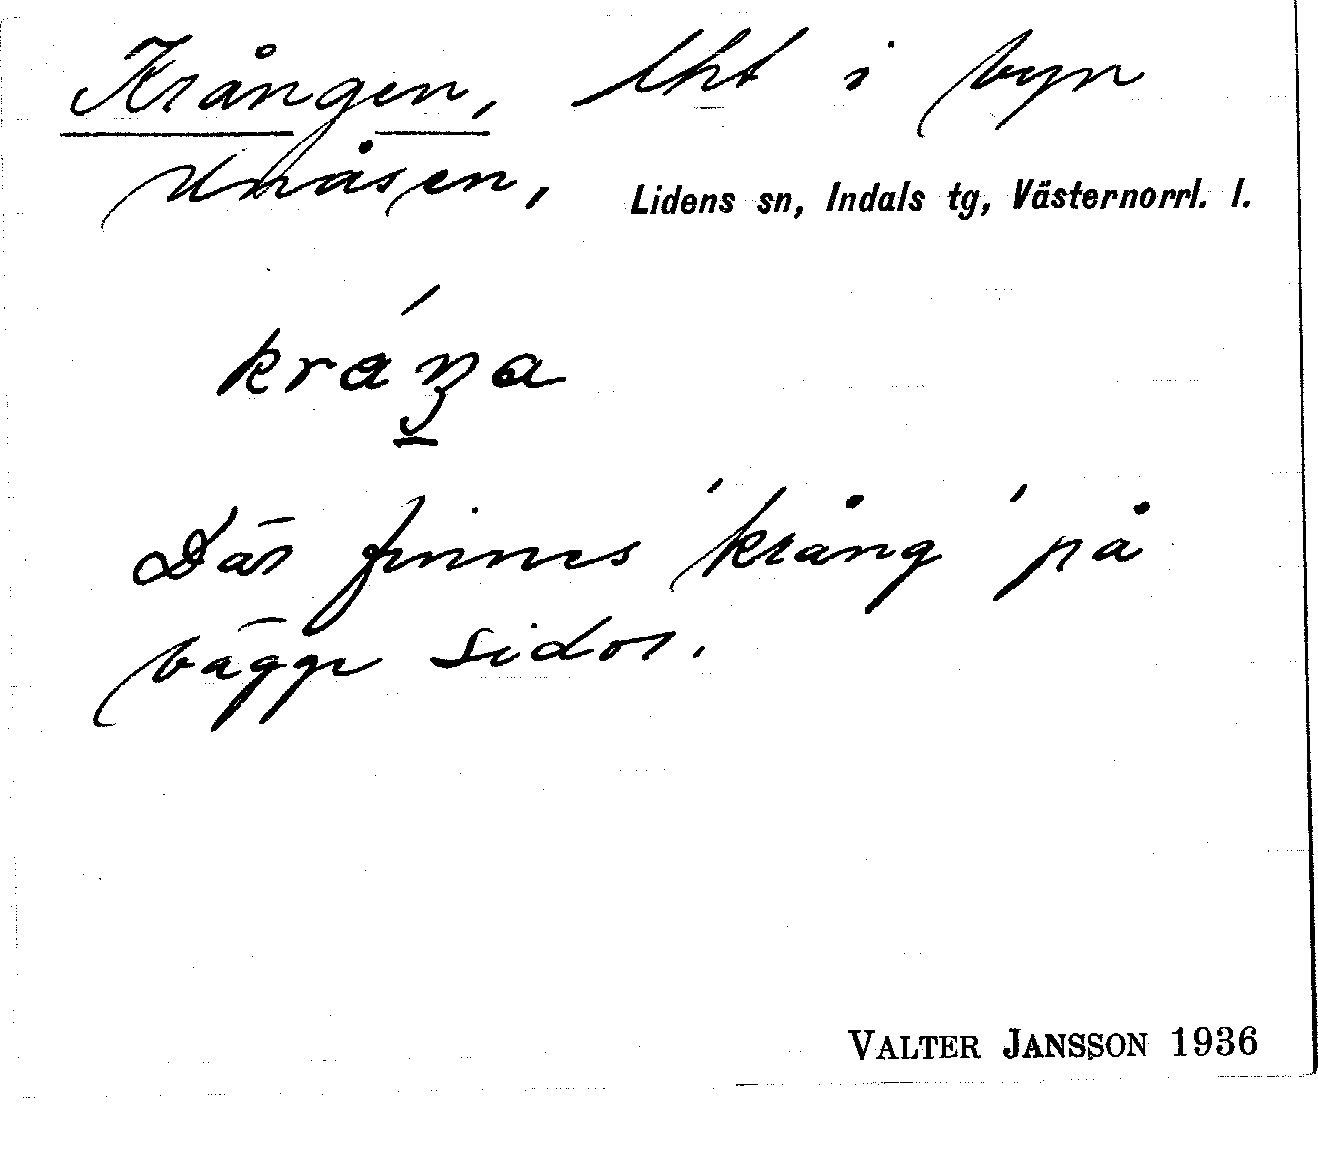 Krången, lht i byn
Åsen, Lidens sn, Indals tg, Västernorrl. l.
kráŋa
Där finnes 'krång' på
bägge sidor.
VALTER JANSSON 1936